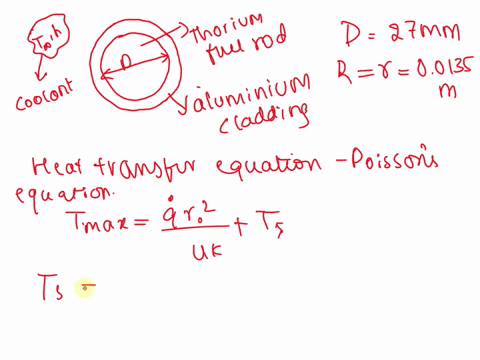 T∞,h
coolant
D
Thorium
full rod
aluminium
cladding
D = 27mm
R = r = 0.0135
m
Heat transfer equation - Poisson's
equation.
Tmax = q̇ r₀² / 4K + Ts
Ts =